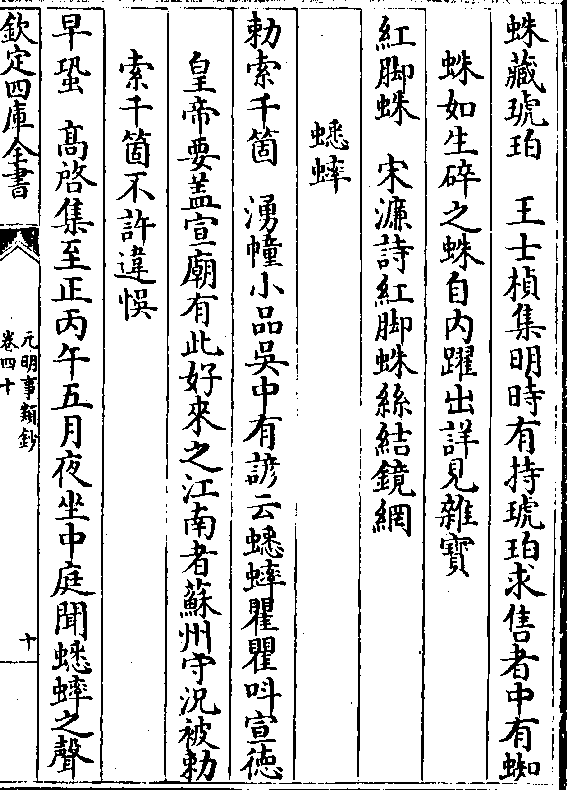 蛛藏琥珀　王士楨集明時有持琥珀求售者中有蜘
蛛如生碎之蛛自内躍出詳見雜寳
紅脚蛛　宋濂詩紅脚蛛絲結鏡網
蟋蟀
勅索千箇　湧幢小品吳中有諺云蟋蟀瞿瞿呌宣徳
皇帝要盖宣廟有此好來之江南者蘇州守況被勅
索千箇不許違悞
早蛩　髙啓集至正丙午五月夜坐中庭聞蟋蟀之聲
欽定四庫全書
元明事類鈔
卷四十
十